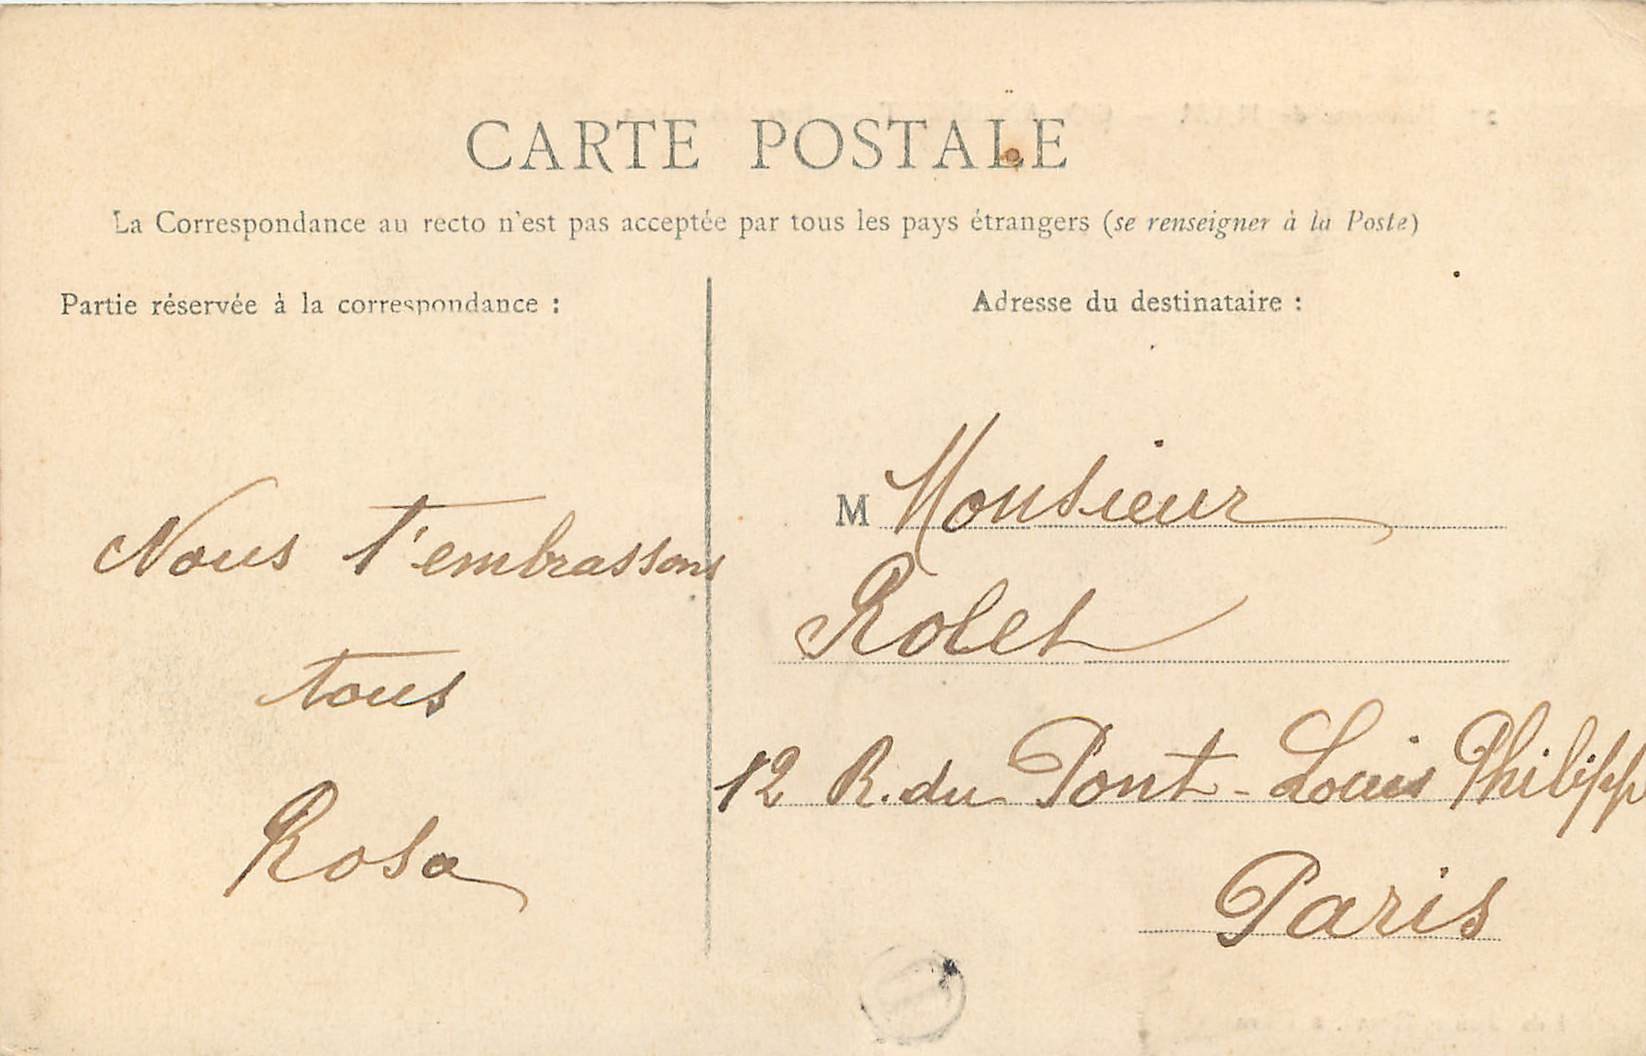 CARTE POSTALE
La Correspondance au recto n'est pas acceptée par tous les pays étrangers (se renseigner à la Poste)
Partie réservée à la correspondance :
Nous t'embrassons
tous
Rosa
Adresse du destinataire :
M Monsieur
Rolet
12 R. du Pont-Louis Philipp
Paris